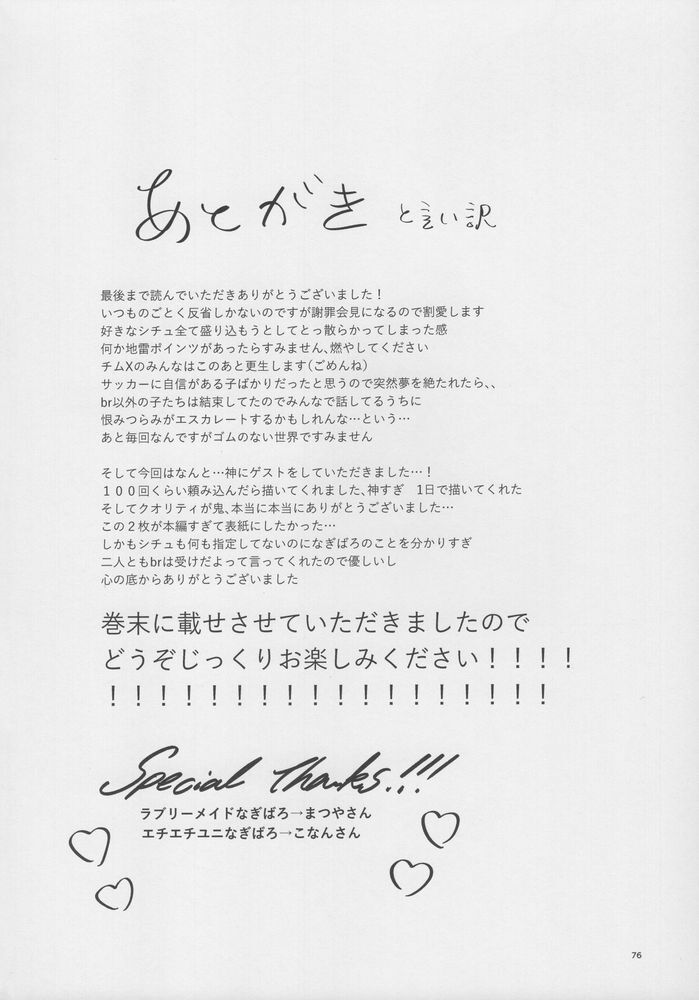 あとがき と言い訳
最後まで読んでいただきありがとうございました！
いつものごとく反省しかないのですが謝罪会見になるので割愛します
好きなシチュ全て盛り込もうとしてとっ散らかってしまった感
何か地雷ポインツがあったらすみません、燃やしてください
チムXのみんなはこのあと更生します（ごめんね）
サッカーに自信がある子ばかりだったと思うので突然夢を絶たれたら、、
br以外の子たちは結束してたのでみんなで話してるうちに
恨みつらみがエスカレートするかもしれんな…という…
あと毎回なんですがゴムのない世界ですみません
そして今回はなんと…神にゲストをしていただきました…！
１００回くらい頼み込んだら描いてくれました、神すぎ　1日で描いてくれた
そしてクオリティが鬼、本当に本当にありがとうございました…
この２枚が本編すぎて表紙にしたかった…
しかもシチュも何も指定してないのになぎばろのことを分かりすぎ
二人ともbrは受けだよって言ってくれたので優しいし
心の底からありがとうございました
巻末に載せさせていただきましたので
どうぞじっくりお楽しみください！！！！
！！！！！！！！！！！！！！！！！！
Special Thanks!!!
ラブリーメイドなぎばろ→まつやさん
エチエチユニなぎばろ→こなんさん
76